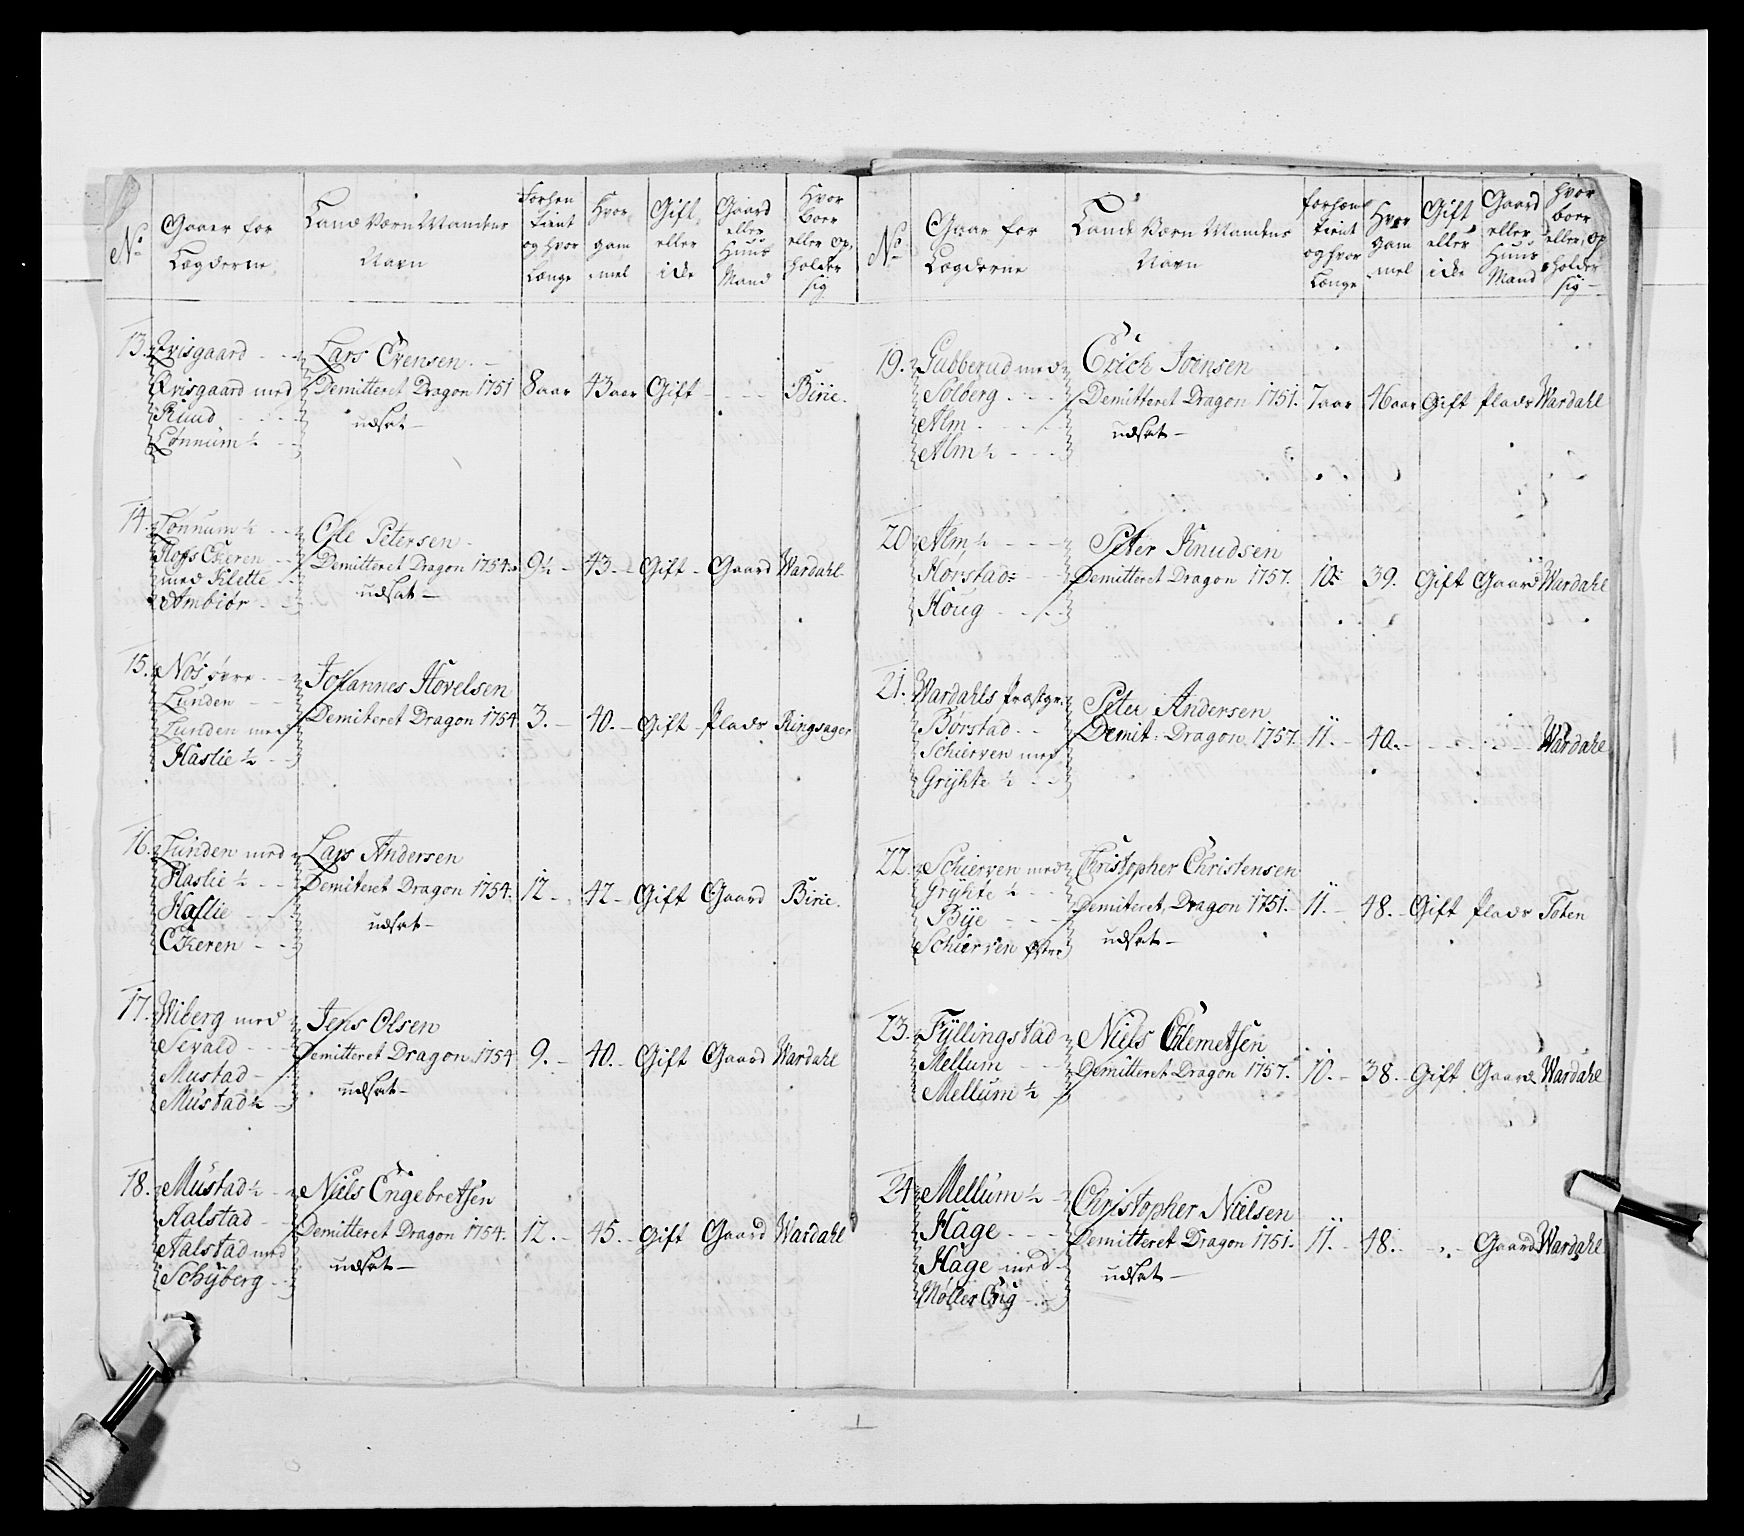 No
Gaaer for
Lægderne
Land Værn Mandens
Navn
forhen
tient
og hvor
Længe
Hvor
gam
mel
Gift
eller
icke
Gaard
eller
Huus
Mand
Hvor
boer
eller op
holder
sig
13. Qvisgaard
Qvisgaard med
Ruud
Lønnum ½
Lars Evensen
Demitteret Dragon 1751
udsat
8 aar 43 aar Gift Birie.
14. Lønnum ½
med Klette
Ambiør
Ole Petersen
Demitteret Dragon 1754
udsat
9½ 43. Gift Gaard Wardahl
15. Nøs øvre
Lunden
Lunden med
Haslie ½
Johannes Hovelsen
Demiteret Dragon 1754
3. 40. Gift Plads Ringsager
16. Lunden med
Haslie ½
Haslie
Ekeren
Lars Andersen
Demiteret Dragon 1754.
udsat
12 42 Gift Gaard Birie.
17. Wiberg med
Sevald
Mustad
Mustad ½
Jens Olsen
Demitteret Dragon 1754
udsat
9. 40. Gift Gaard Wardahl
18. Mustad ½
Aalstad
Aalstad med
Schÿberg
Niels Engebretsen
Demitteret Dragon 1754.
udsat
12. 45. Gift Gaard Wardahl
No
Gaar for
Lægderne
Land Værn Mandens
Navn
forhen
tient
og hvor
Længe
Hvor
gam
mel
Gift
eller
icke
Gaard
eller
Huus
Mand
hvor
boer
eller op
holder
sig
19. Gubberud med
Solberg
Alm
Alm ½
Erich Joensen
Demitteret Dragon 1751.
udsat
7 aar 46 aar Gift Plads Wardahl
20 Alm ½
Horstad
Houg
Peter Knudsen
Demitteret Dragon 1757.
10 39. Gift Gaard Wardahl
21. Wardahls Præstgr.
Børstad
Schierven med
Grÿhte ½
Peter Andersen
Demit: Dragon 1757.
11. 40. Wardahl
22. Schierven med
Grÿhte ½
Bÿe
Schierven østre
Christopher Christensen
Demiteret Dragon 1751.
udsat
11. 48. Gift Plads Toten
23. Fÿllingstad
Mellum
Mellum ½
Niels Clemetsen
Demitteret Dragon 1757.
10. 38. Gift Gaard Wardahl
24 Mellum ½
Hage
Hage med
Møller Eng
Christopher Nielsen
Demitteret Dragon 1751.
udsat
11. 48. Gaard Wardahl